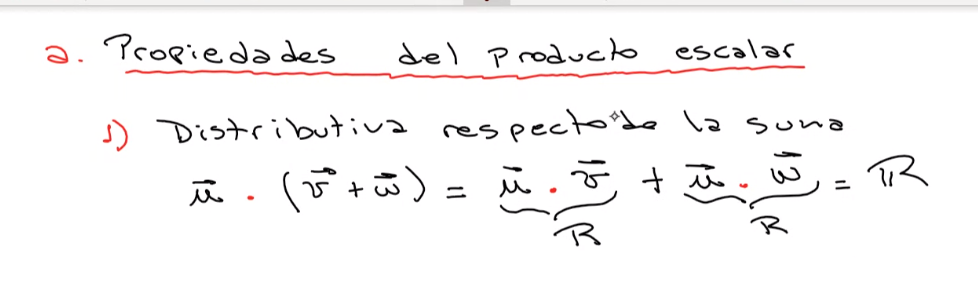 a. Propiedades del producto escalar
1) Distributiva respecto de la suma
u⃗ · (v⃗ + w⃗) = u⃗ · v⃗ + u⃗ · w⃗ = ℝ
ℝ ℝ